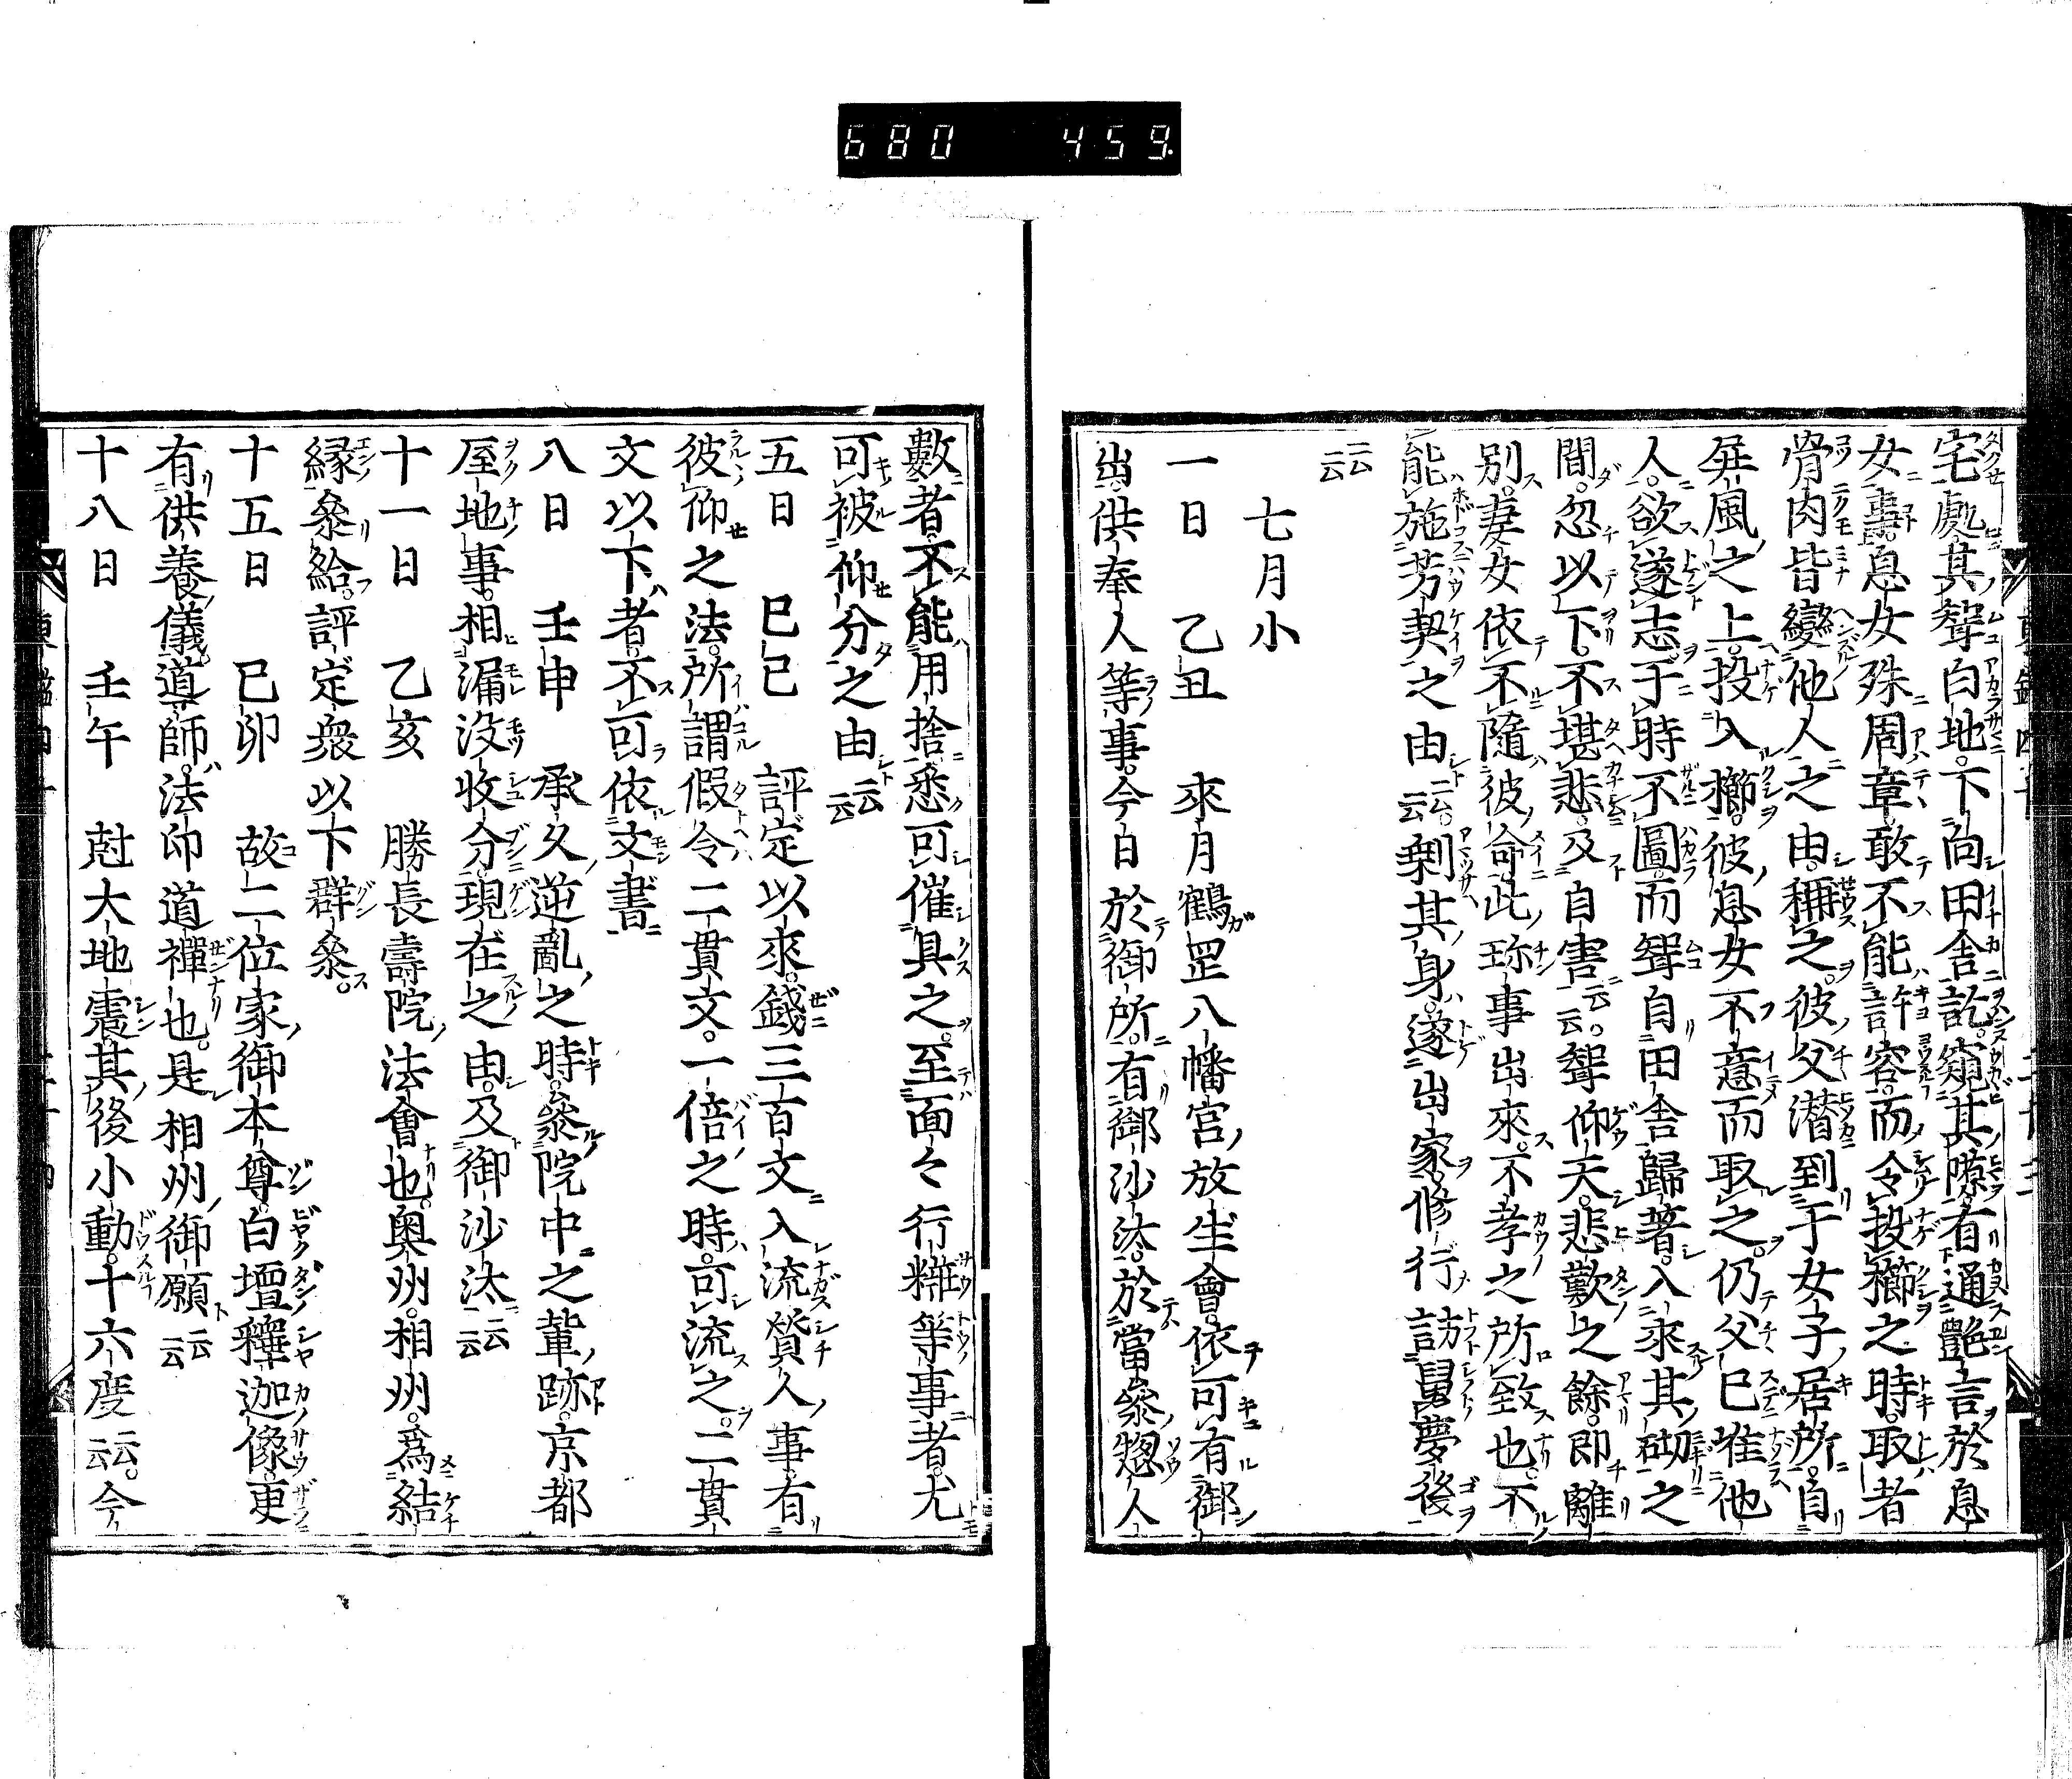 680 459
宅處其聟白地下向田舍訖窺其隙有通艶言於息
女事息女殊周章敢不能許容而令投櫛之時取者
骨肉皆變他人之由稱之彼父潛到于女子居所自
屏風之上投入櫛彼息女不意而取之仍父已准他
人欲遂志于時不圖而聟自田舍歸著入來其砌之
間忽以下不堪悲及自害云云聟仰天悲歎之餘即離
別妻女依不隨彼命此珎事出來不孝之所致也不
能施芳契之由云云剩其身遂出家修行訪舅夢後
云云
七月小
一日 乙丑 來月鶴罡八幡宮放生會依可有御
出供奉人等事今日於御所有御沙汰於當參惣人
數者不能用捨悉可催具之至面々行粧等事者尤
可被仰分之由云云
五日 己巳 評定以來錢三百文入流質人事有
彼仰之法所謂假令二貫文一倍之時可流之二貫
文以下者不可依文書
八日 壬申 承久逆亂之時參院中之輩跡京都
屋地事相漏沒收分現在之由及御沙汰云云
十一日 乙亥 勝長壽院法會也奥州相州爲結
縁參給評定衆以下群參
十五日 己卯 故二位家御本尊白壇釋迦像更
有供養儀道師法印道禪也是相州御願云云
十八日 壬午 尅大地震其後小動十六度云云今